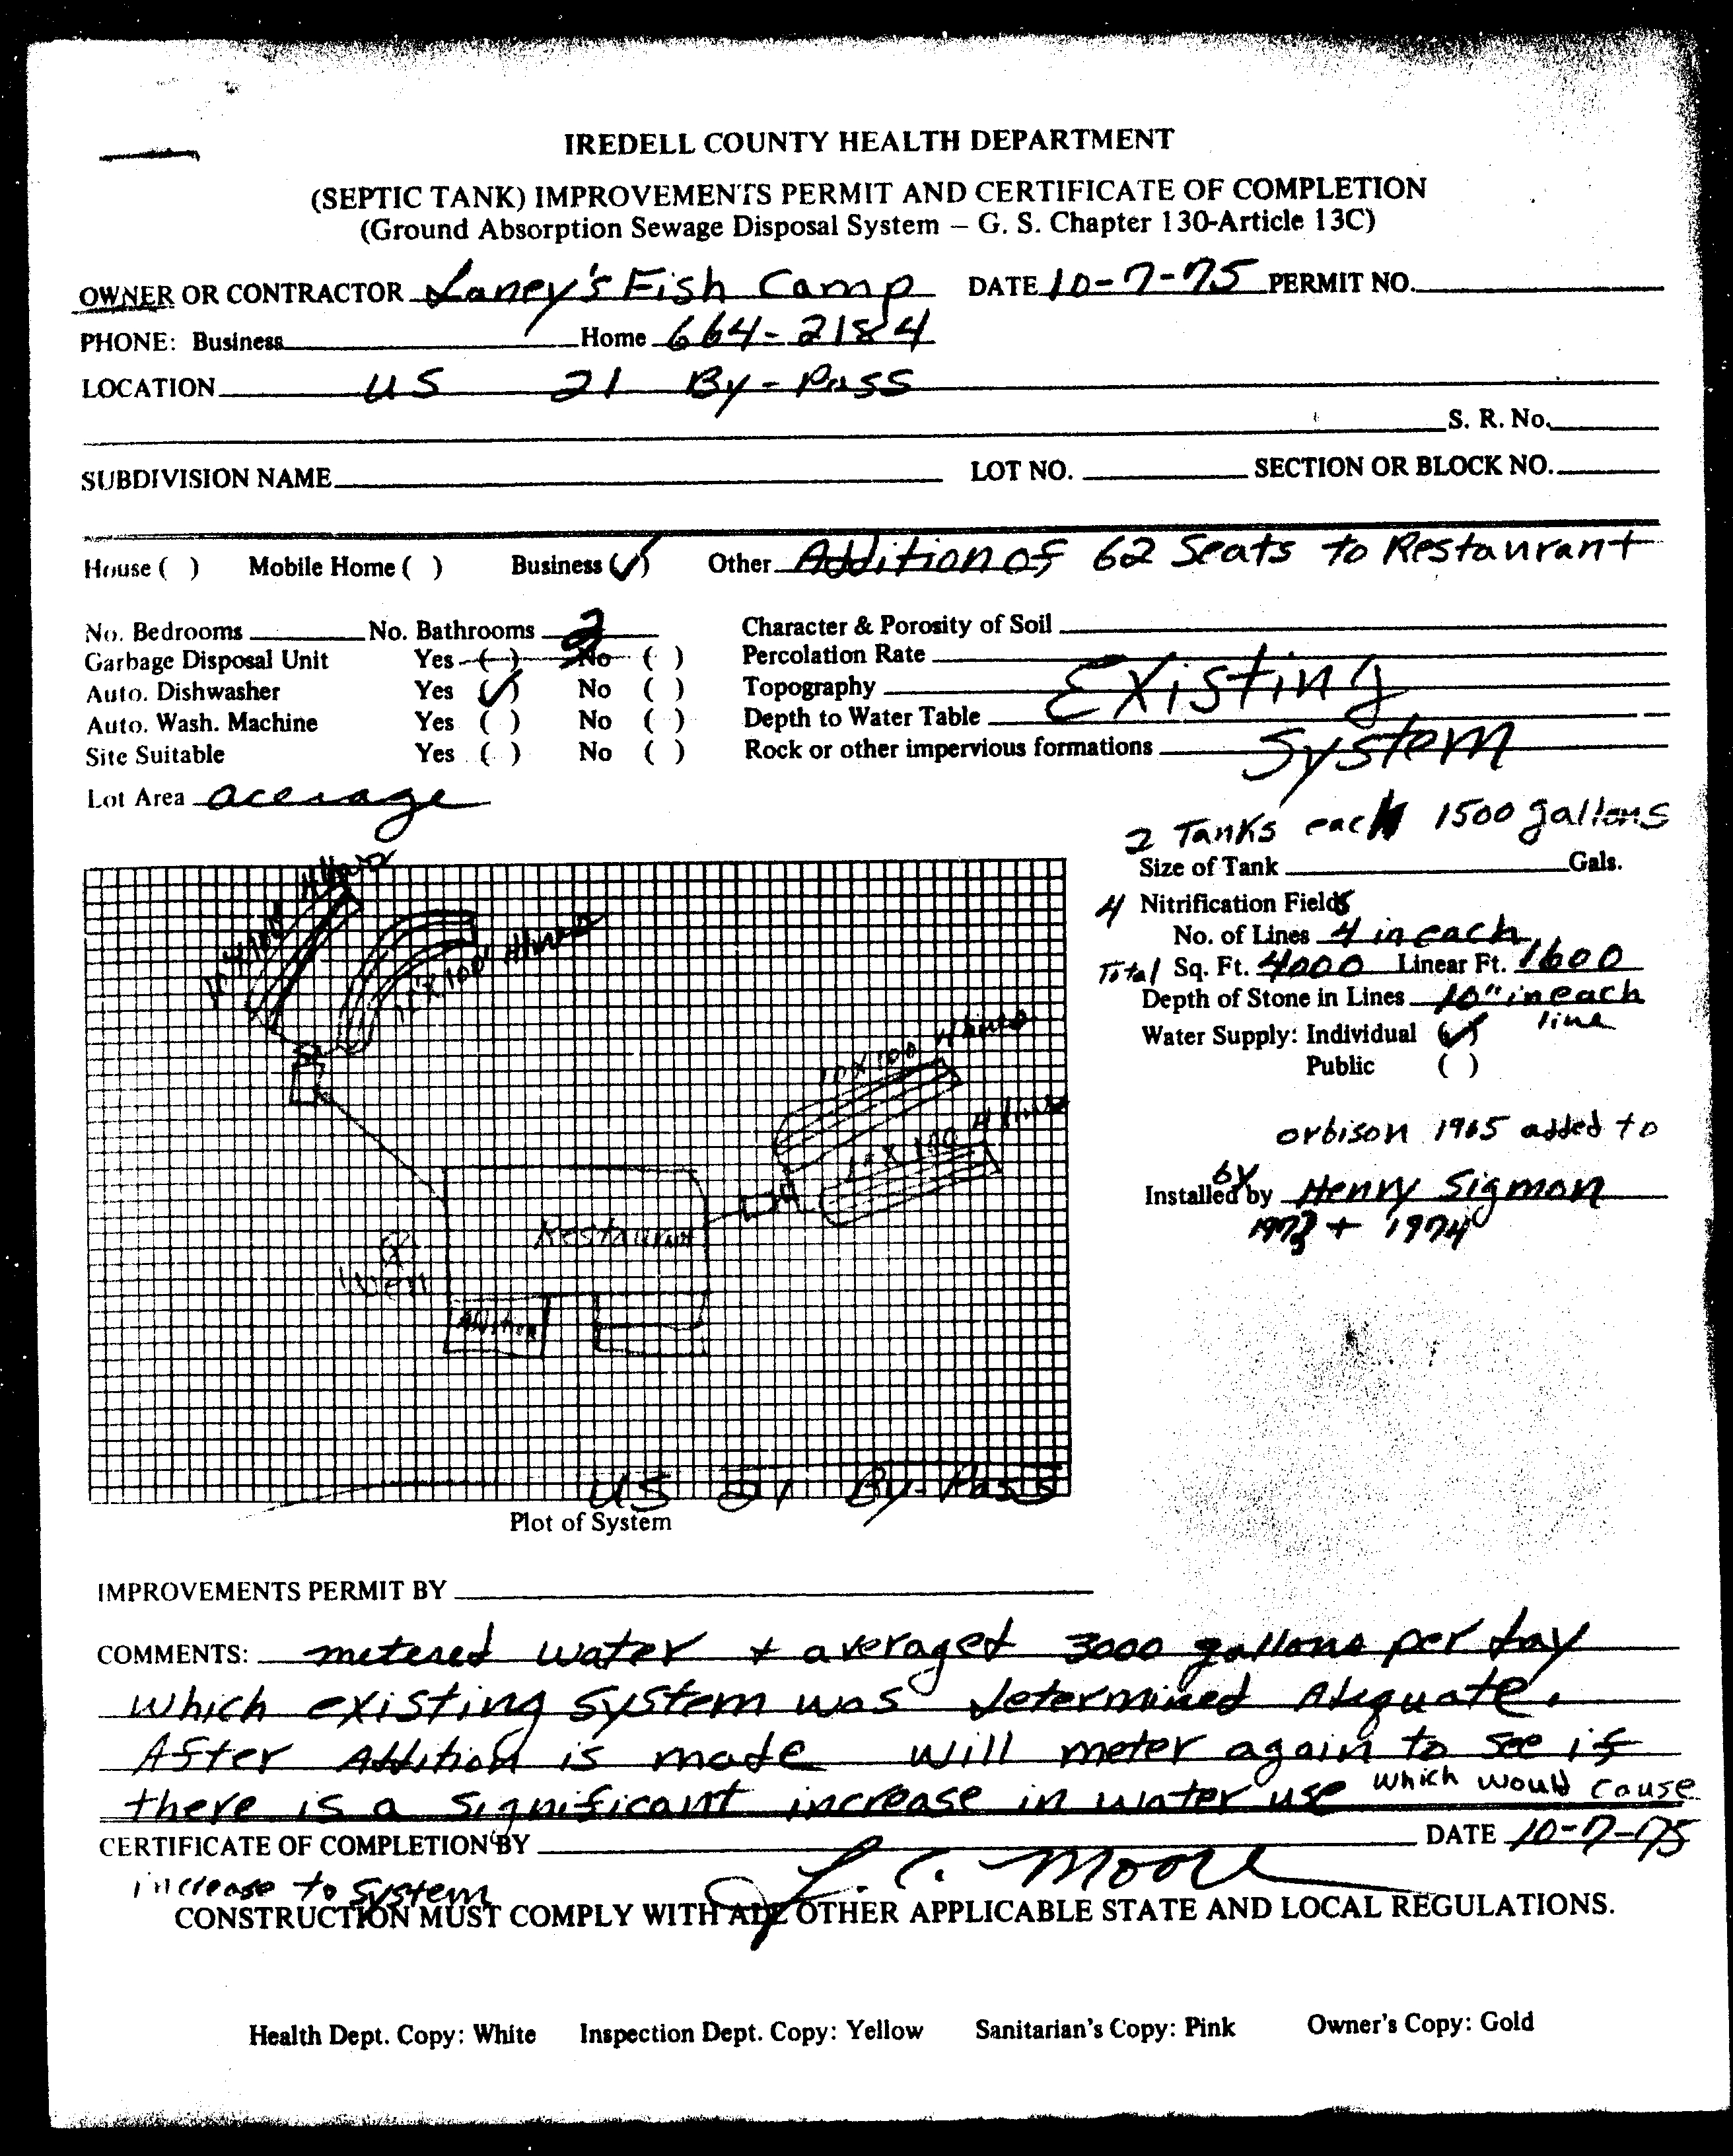 IREDELL COUNTY HEALTH DEPARTMENT
(SEPTIC TANK) IMPROVEMENTS PERMIT AND CERTIFICATE OF COMPLETION
(Ground Absorption Sewage Disposal System – G. S. Chapter 130-Article 13C)
OWNER OR CONTRACTOR Laney's Fish Camp DATE 10-7-75 PERMIT NO.
PHONE: Business Home 664-2184
LOCATION US 21 By-Pass
S. R. No.
SUBDIVISION NAME LOT NO. SECTION OR BLOCK NO.
House ( ) Mobile Home ( ) Business (✓) Other Addition of 62 Seats to Restaurant
No. Bedrooms No. Bathrooms 2 Character & Porosity of Soil
Garbage Disposal Unit Yes ( ) No ( ) Percolation Rate
Auto. Dishwasher Yes (✓) No ( ) Topography Existing
Auto. Wash. Machine Yes ( ) No ( ) Depth to Water Table
Site Suitable Yes ( ) No ( ) Rock or other impervious formations System
Lot Area acerage
2 Tanks each 1500 gallons
Size of Tank Gals.
4 Nitrification Fields
No. of Lines 4 in each
Total Sq. Ft. 4000 Linear Ft. 1600
Depth of Stone in Lines 10" in each
line
Water Supply: Individual (✓)
Public ( )
orbison 1965 added to
by
Installed by Henry Sigmon
1973 + 1974
4 lines
10 X 100 4 lines
10 X 100 4 lines
Restaurant
Well
Addition
US 21 By-Pass
Plot of System
IMPROVEMENTS PERMIT BY
COMMENTS: metered water + averaged 3000 gallons per day
which existing system was determined Adequate.
After Addition is made will meter again to see if
there is a significant increase in water use which would cause
CERTIFICATE OF COMPLETION BY L. C. Moore DATE 10-7-75
increase to system
CONSTRUCTION MUST COMPLY WITH ALL OTHER APPLICABLE STATE AND LOCAL REGULATIONS.
Health Dept. Copy: White Inspection Dept. Copy: Yellow Sanitarian's Copy: Pink Owner's Copy: Gold